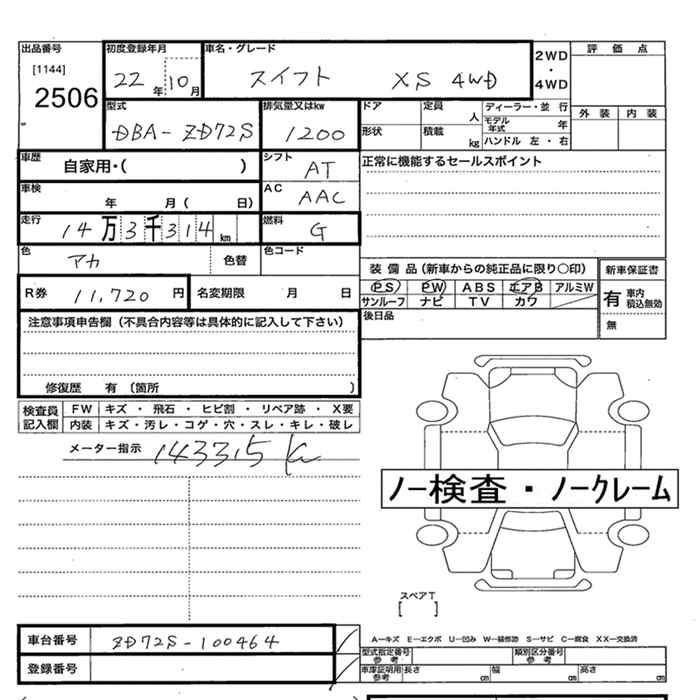 出品番号 初度登録年月 車名・グレード 2WD・4WD 評価点
[1144]
2506 22年 10月 スイフト XS 4WD
型式 排気量又はkw ドア 定員 人 ディーラー・並 行 外装 内装
DBA-ZD72S 1200 形状 積載 kg モデル年式 年
ハンドル 左・右
車歴 自家用・( ) シフト AT 正常に機能するセールスポイント
車検 年 月( 日) AC AAC
走行 14万3千314 km 燃料 G
色 アカ 色替 色コード
装備品(新車からの純正品に限り○印) 新車保証書
R券 11,720 円 名変期限 月 日 PS PW ABS エアB アルミW 有 車内積込無効
サンルーフ ナビ TV カワ
注意事項申告欄(不具合内容等は具体的に記入して下さい) 後日品 無
修復歴 有 (箇所 )
検査員記入欄 FW キズ ・ 飛石 ・ ヒビ割 ・ リペア跡 ・ X要
内装 キズ・汚レ・コゲ・穴・スレ・キレ・破レ
メーター指示 143315 K
ノー検査・ノークレーム
スペアT
[ ]
車台番号 ZD72S-100464 A―キズ E―エクボ U―凹み W―補修跡 S―サビ C―腐食 XX―交換済
型式指定番号 参考 類別区分番号 参考
登録番号 車庫証明用 参考 長さ cm 幅 cm 高さ cm